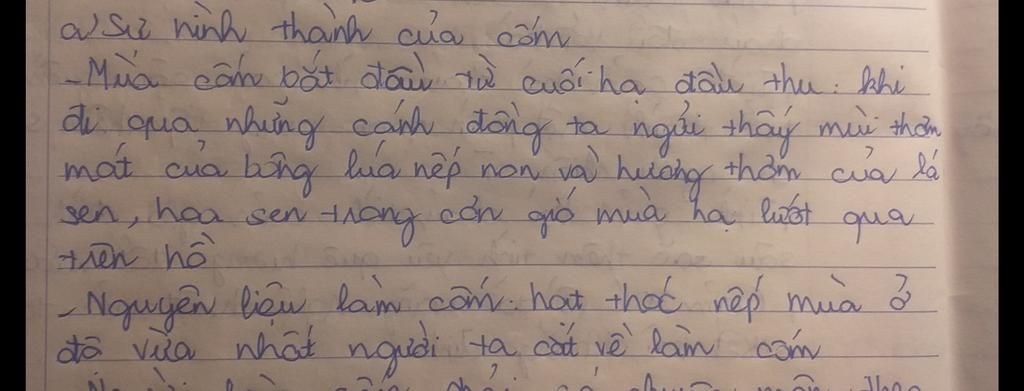 a) Sự hình thành của cốm
- Mùa cốm bắt đầu từ cuối hạ đầu thu: khi
đi qua những cánh đồng ta ngửi thấy mùi thơm
mát của bông lúa nếp non và hương thơm của lá
sen, hoa sen trong cơn gió mùa hạ lướt qua
trên hồ
- Nguyên liệu làm cốm: hạt thóc nếp mùa ở
độ vừa nhất người ta cắt về làm cốm